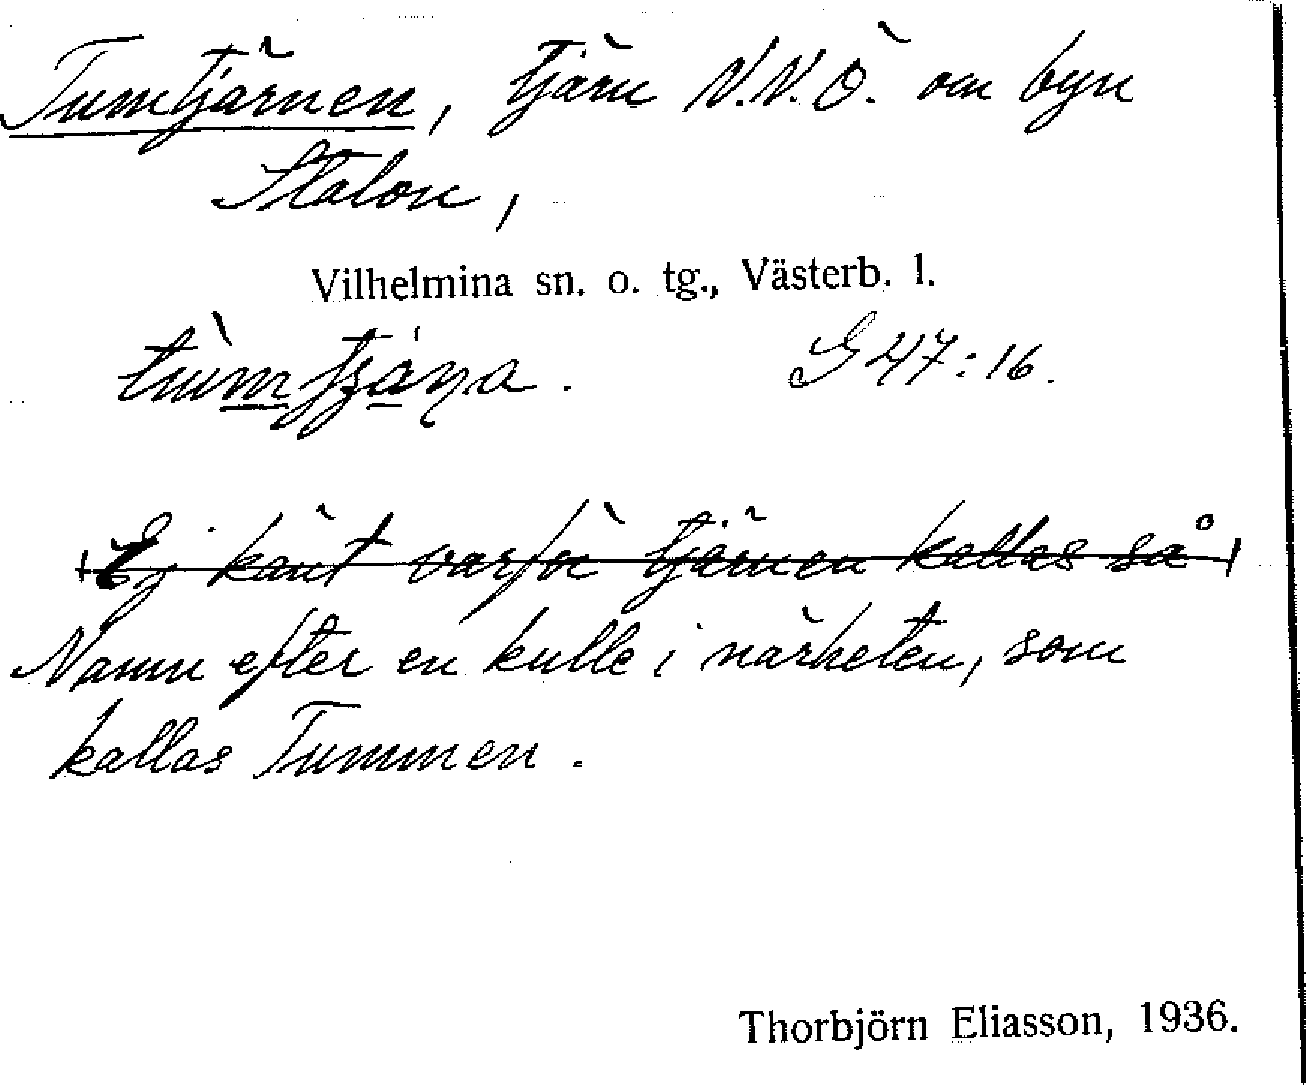 Tumtjärnen, tjärn N.N.Ö. om byn
Stalon,
Vilhelmina sn. o. tg., Västerb. l.
G 47:16.
Ej känt varför tjärnen kallas så
Namn efter en kulle i närheten, som
kallas Tummen.
Thorbjörn Eliasson, 1936.